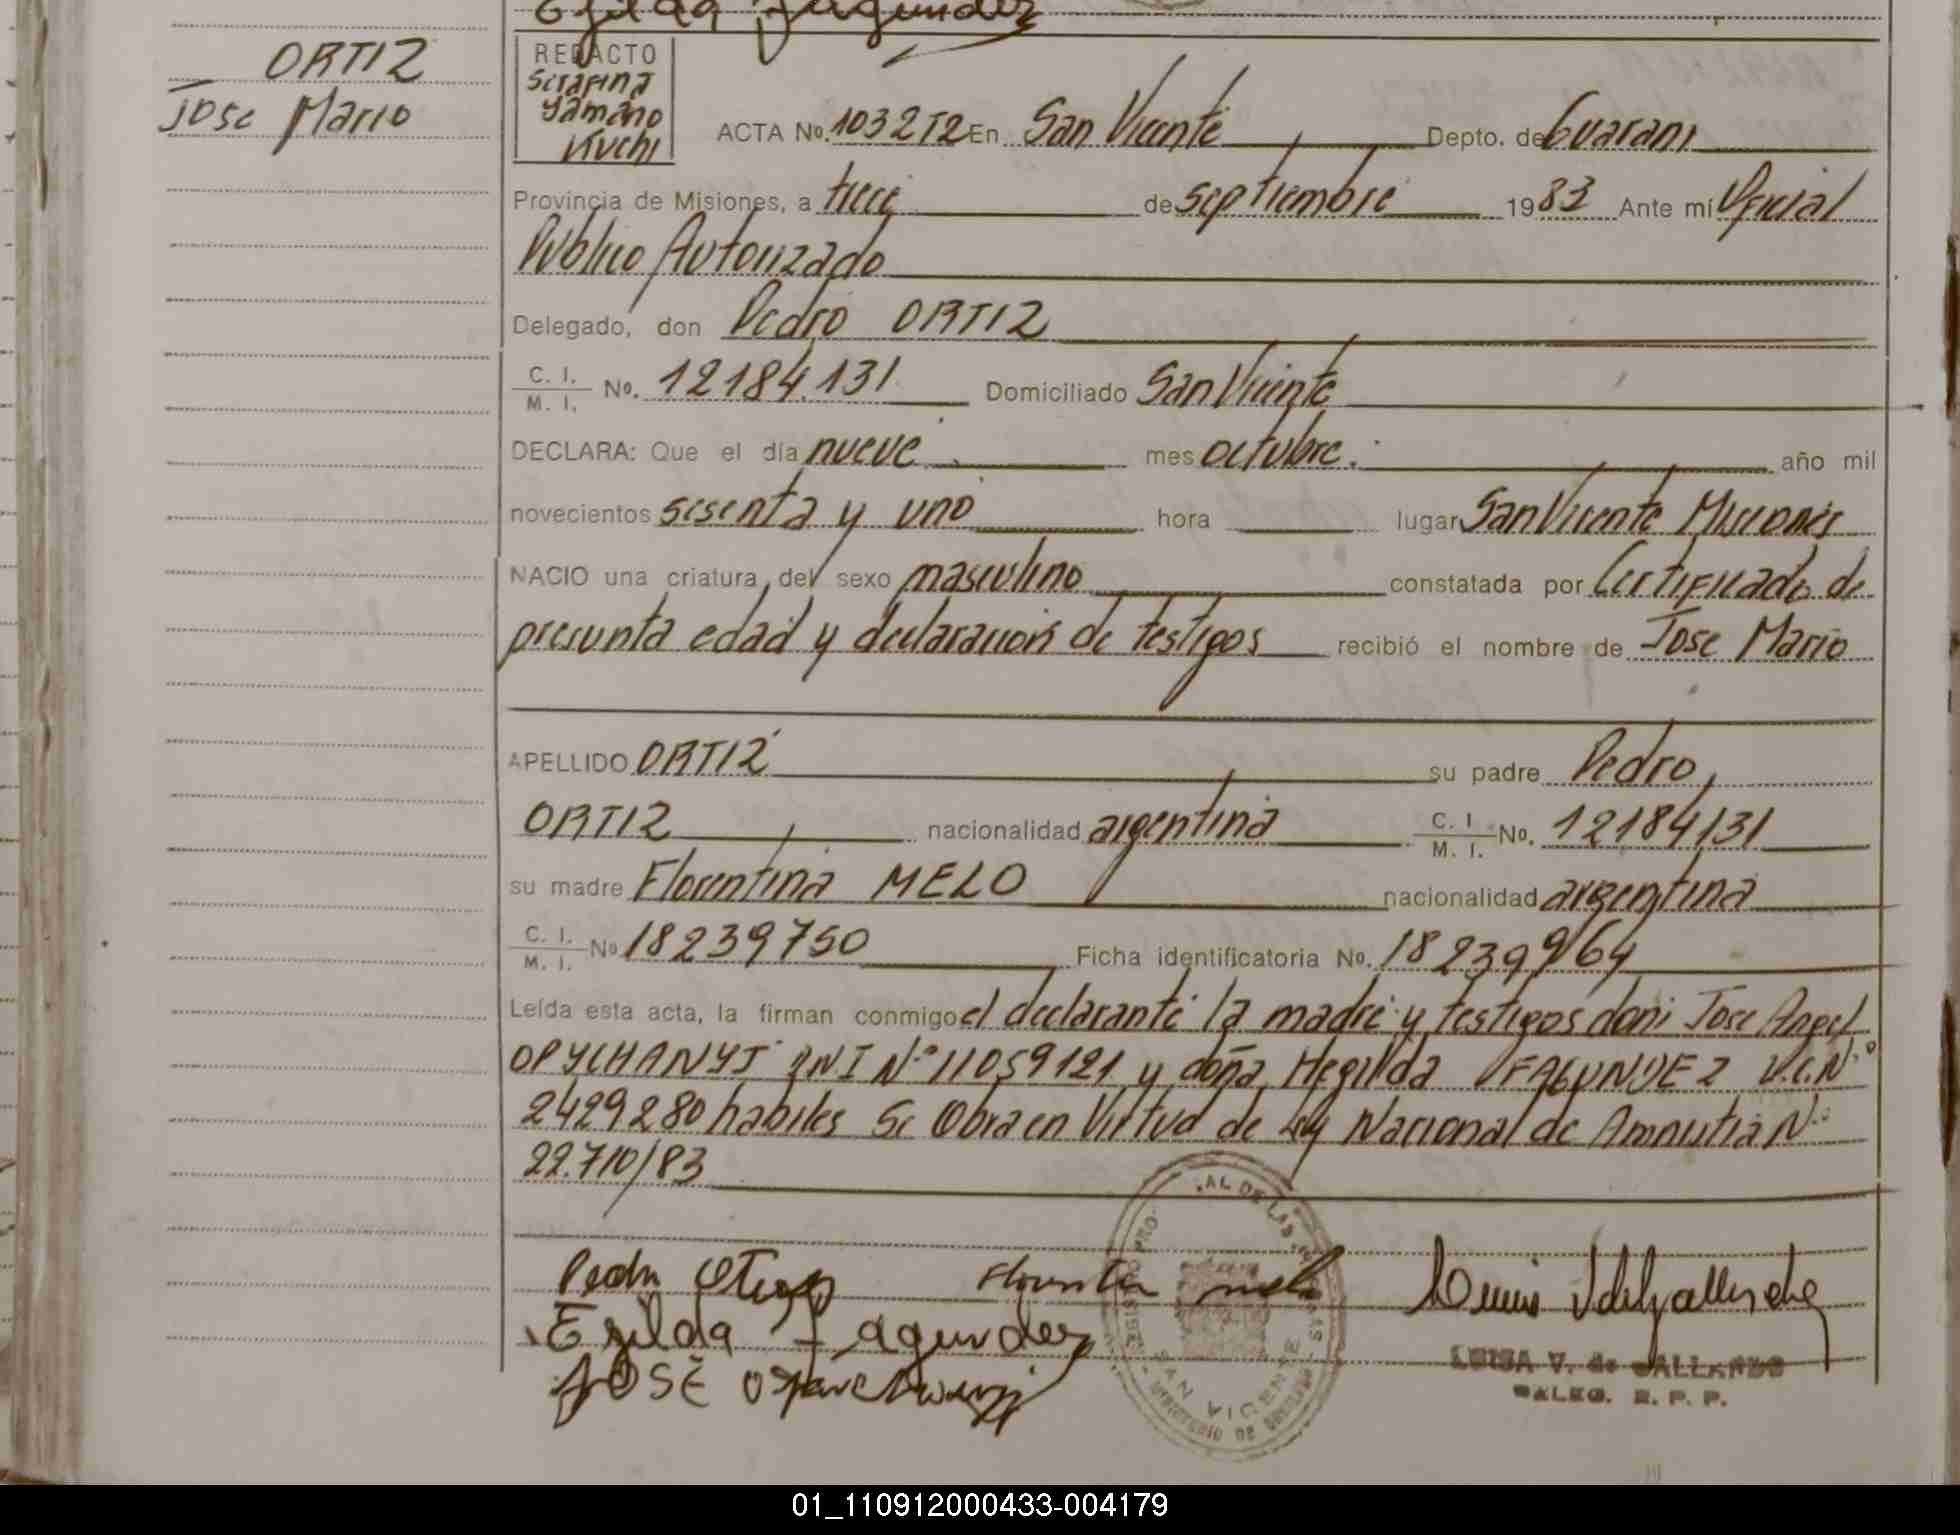 Egilda Fagundez
ORTIZ
Jose Mario
REDACTO
Serafina
Yamano
Kiuchi
ACTA No. 1032 T2 En San Vicente Depto. de Guarani
Provincia de Misiones, a trece de septiembre 1983 Ante mí Oficial
Publico Autorizado
Delegado, don Pedro ORTIZ
C. I. / M. I. No. 12184.131 Domiciliado San Vicente
DECLARA: Que el día nueve mes octubre. año mil
novecientos sesenta y uno hora lugar San Vicente Misiones
NACIO una criatura, del sexo masculino constatada por Certificado de
presunta edad y declaracion de testigos recibió el nombre de Jose Mario
APELLIDO ORTIZ su padre Pedro
ORTIZ nacionalidad argentina C. I. / M. I. No. 12184131
su madre Florentina MELO nacionalidad argentina
C. I. / M. I. No 18239750 Ficha identificatoria No. 18239964
Leída esta acta, la firman conmigo el declarante la madre y testigos don: Jose Angel
OPYCHANYJ DNI Nº 11059121 y doña Hegilda FAGUNDEZ L.C.Nº
2429280 habiles Se Obra en Virtud de Ley Nacional de Amnistia Nº
22.710/83
Pedro Florentina melo
Egilda Fagundez
JOSE
SAN VICENTE
LUISA V. de GALLARDO
DALEG. R. P. P.
01_110912000433-004179